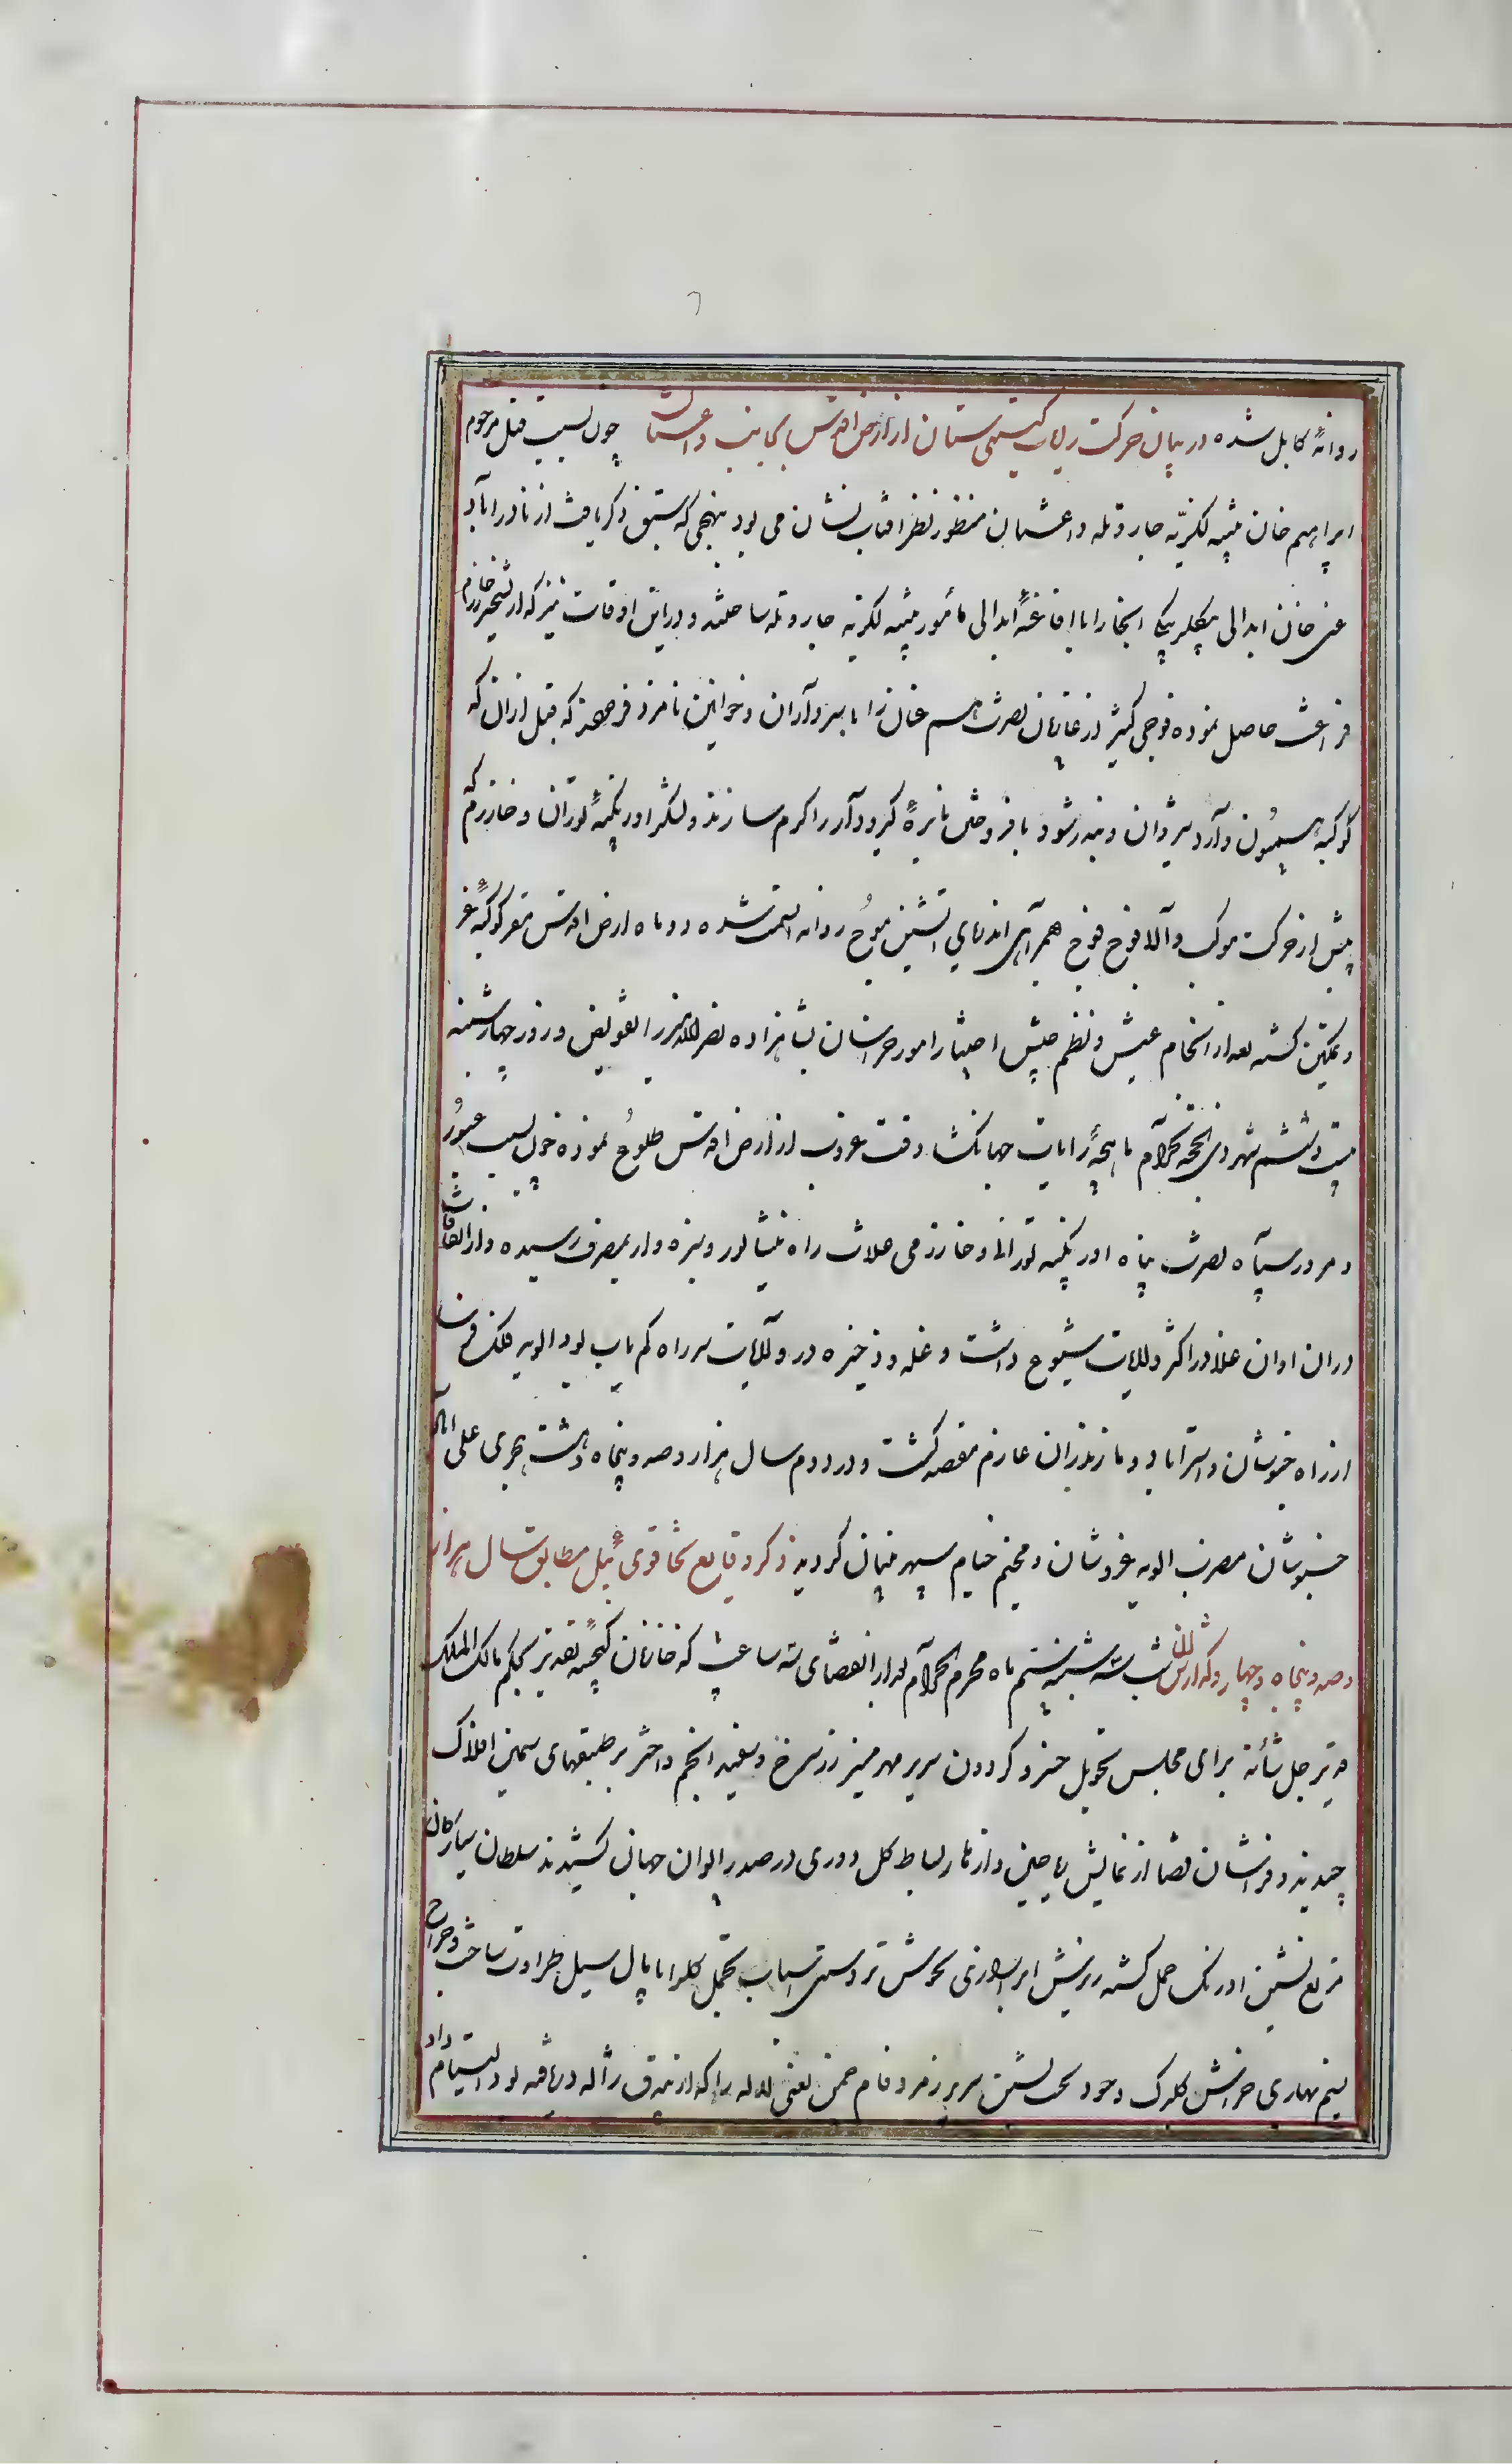 روانهٔ کابل شده در بیان حرکت رایات گیتی ستان از ارض اقدس بجانب داغستان چون بسبب قتل مرحوم
ابراهیم خان تنبیه لکزیه جار و تله داغستان منظور نظر افتاب نشان می بود بنهجی که سبق ذکر یافت از نادراباد
غنی خان ابدالی بیگلربیگی انجا را با افاغنهٔ ابدالی مأمور تنبیه لکزیه جار و تله ساختند و در این اوقات نیز که از تسخیر خوارزم
فراغت حاصل نموده فوجی کثیر از غازیان نصرت عنان را با سرداران و خوانین نامزد فرمودند که قبل ازان که
کوکبهٔ همیون وارد شیروان و دربند شود بافروختن نایرهٔ گیرودار را گرم سازند و لشکر اوزبکیهٔ توران و خوارزم که
پیش از حرکت موکب والا فوج فوج همراهی اندریای آتشین موج روانه انسمت شده دو ماه ارض اقدس مقر کوکبهٔ عز
و تمکین گشته بعد از انجام عیش و نظم جیش اختیار امور خراسان بشاهزاده نصرالله میرزا تفویض و روز چهارشنبه
بیست و ششم شهر ذی الحجه الحرام ماهچهٔ رایات جهانگشا وقت غروب از ارض اقدس طلوع نموده چون بسبب عبور
و مرور سپاه نصرت پناه اوزبکیه توران و خوارزمی غلات راه نیشابور و سبزه وار بمصرف رسیده و از اتفاقات
دران اوان غلا در اکثر ولایات شیوع داشت و غله و ذخیره در ولایات سر راه کم یاب بود الویه فلک فرسا
از راه خبوشان و استراباد و مازندران عازم مقصد گشت و در دوم سال هزار و صد و پنجاه و هشت هجری علی
خبوشان مصرب الویه عز و شان و مخیم خیام سپهر بنیان گردید ذکر وقایع تخاقوی ئیل مطابق سال هزار
و صد و پنجاه و چهار و گذارش شب سه شنبه بیستم ماه محرم الحرام بعد از انقضای سه ساعت که خازنان گنجینه تقدیر بحکم مالک الملک
قدیر جل شأنه برای مجلس تحویل خسرو گردون سریر مهر منیر زر سرخ و سفید انجم و اختر بر طبقهای سیمین افلاک
چیدند و فراشان قضا از نمایش ریاحین و ازهار بساط گل دوزی در صدر ایوان جهان کشیدند سلطان سیارگان
مربع نشین اورنگ حمل گشته ریزش ابر آزاری بجوشش تردستی اسباب تجمل گلها پامال سیل طراوت ساخت و جراح
نسیم بهاری خراش گلبرگ وجود تخت نشین سریر زمرد فام چمن یعنی لاله را که از بندق ژاله دریافته بود التیام داد